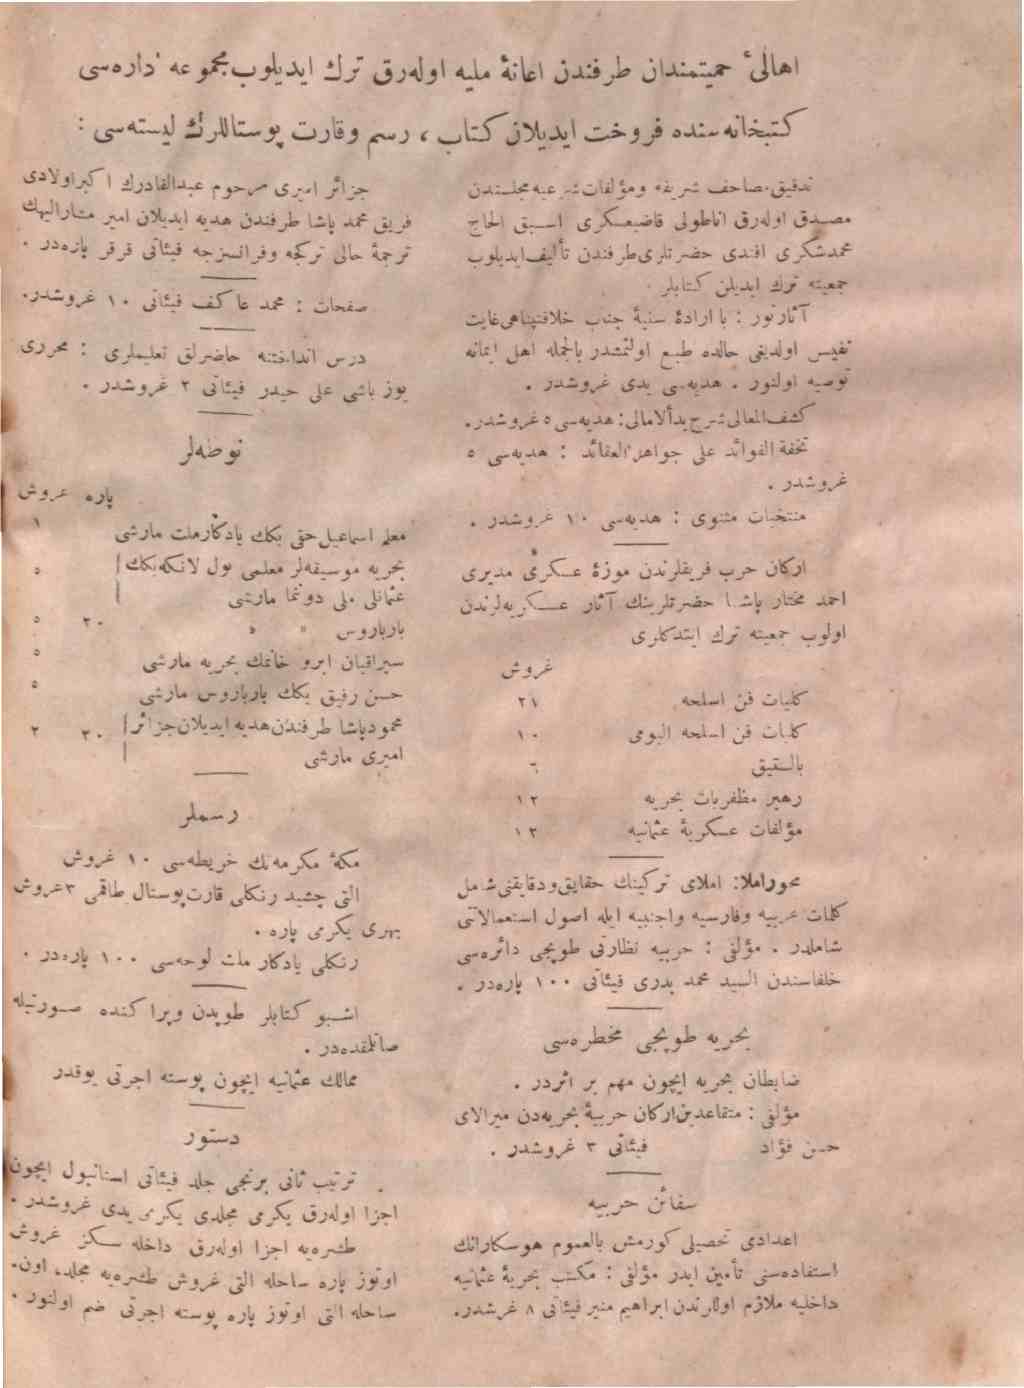 اهالیٔ حمیتمندان طرفندن اعانهٔ ملیه اولهرق ترك ایدیلوب مجموعه ادارهسی
كتبخانهسنده فروخت ایدیلان كتاب ، رسم وقارت پوستاللرڭ لیستهسی :
تدقیق مصاحف شریفه ومؤلفات شرعیه مجلسندن
مصدق اولهرق اناطولی قاضیعسكری اسبق الحاج
محمدشكری افندی حضرتلری طرفندن تألیف ایدیلوب
جمعیته ترك ایدیلن كتابلر .
آثارنور : با ارادهٔ سنیهٔ جناب خلافتپناهی غایت
نفیس اولدیغی حالده طبع اولنمشدر بالجمله اهل ایمانه
توصیه اولنور . هدیهسی یدی غروشدر .
كشف المعالی شرح بدأ الامالی : هدیهسی ٥ غروشدر.
تحفة الفوائد علی جواهر العقائد : هدیهسی ٥
غروشدر .
منتخبات مثنوی : هدیهسی ١٠ غروشدر .
اركان حرب فریقلرندن موزهٔ عسكری مدیری
احمد مختار پاشا حضرتلرینك آثار عسكریهلرندن
اولوب جمعیته ترك ایتدكلری
غروش
كلیات فن اسلحه ٢١
كلیات فن اسلحه البومی ١٠
بالستیق ٦
رهبر مظفریات بحریه ١٢
مؤلفات عسكریهٔ عثمانیه ١٢
محوراملا: املای تركینك حقایق ودقایقنی شامل
كلمات عربیه وفارسیه واجنبیه ایله اصول استعمالاتنی
شاملدر . مؤلفی : حربیه نظارتی طوپجی دائرهسی
خلفاسندن السید محمد بدری فیئاتی ١٠٠ پارهدر .
بحریه طوپجی مخطرهسی
ضابطان بحریه ایچون مهم بر اثردر .
مؤلفی : متقاعدین اركان حربیهٔ بحریهدن میرالای
حسن فؤاد فیئاتی ٣ غروشدر .
سفائن حربیه
اعدادی تحصیلی كورمش بالعموم هوسكارانك
استفادهسنی تأمین ایدر مؤلفی : مكتب بحریهٔ عثمانیه
داخلیه ملازم اوللرندن ابراهیم منیر فیئاتی ٨ غرشدر.
جزائر امیری مرحوم عبدالقادرك اكبر اولادی
فریق محمد پاشا طرفندن هدیه ایدیلان امیر مشارالیهك
ترجمهٔ حالی تركجه وفرانسزجه فیئاتی قرقر پارهدر .
صفحات : محمد عاكف فیئاتی ١٠ غروشدر.
درس انداختنه حاضرلق تعلیملری : محرری
یوز باشی علی حیدر فیئاتی ٢ غروشدر .
نوطهلر
پاره غروش
معلم اسماعیل حقی بكك یادكار ملت مارشی ١
بحریه موسیقهلر معلمی پول لانكه بكك ٥
عثمانلی ملی دونما مارشی
بارباروس » » ٢٠ ٥
سیراقیان ابرو خانمك بحریه مارشی ٥
حسن رفیق بكك بارباروس مارشی ٥
محمودپاشا طرفندن هدیه ایدیلان جزائر ٢٠ ٢
امیری مارشی
رسملر
مكهٔ مكرمهنك خریطهسی ١٠ غروش
التی چشید رنكلی قارت پوستال طاقمی ٣ غروش
بهری یكرمی پاره .
رنكلی یادكار ملت لوحهسی ١٠٠ پارهدر .
اشبو كتابلر طوپدن وپراكنده صورتیله
صاتلمقدهدر .
ممالك عثمانیه ایچون پوسته اجرتی یوقدر
دستور
ترتیب ثانی برنجی جلد فیئاتی استانبول ایچون
اجزا اولهرق یكرمی مجلدی یكرمی یدی غروشدر .
طشرهیه اجزا اولهرق داخله سكز غروش
اوتوز پاره ساحله التی غروش طشرهیه مجلد، اون.
ساحله التی اوتوز پاره پوسته اجرتی ضم اولنور .